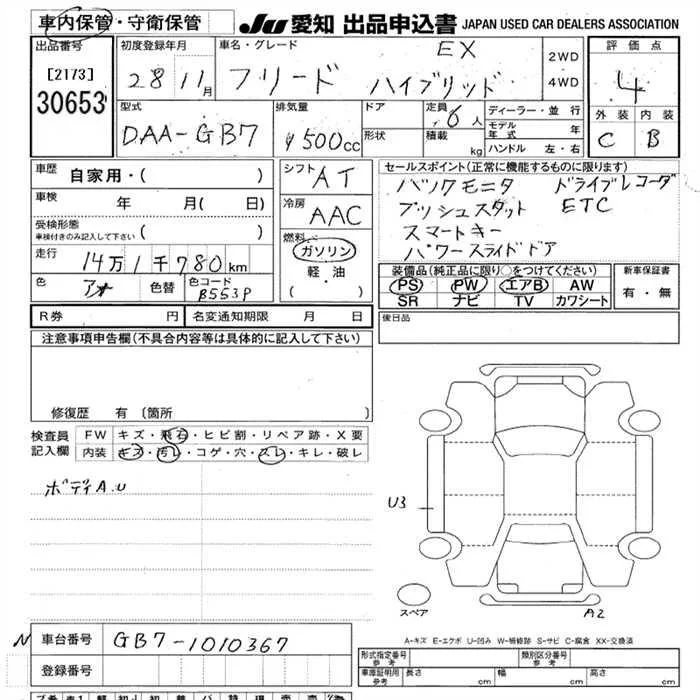 車内保管・守衛保管 JU 愛知 出品申込書 JAPAN USED CAR DEALERS ASSOCIATION
出品番号 初度登録年月 車名・グレード EX 2WD 評価点
[2173] 28 11月 フリード ハイブリッド 4WD 4
30653 型式 排気量 ドア 定員 6人 ディーラー・並行 外装 内装
DAA-GB7 1500cc 形状 積載 kg モデル年式 年 C B
ハンドル 左・右
車歴 自家用・( ) シフト AT セールスポイント(正常に機能するものに限ります)
車検 年 月( 日) 冷房 AAC バックモニタ ドライブレコーダ
受検形態 プッシュスタット ETC
車検付きのみ記入して下さい ( ) 燃料 スマートキー
走行 14万1千780km ガソリン パワースライドドア
色 アオ 色替 色コード B553P 軽油 ・( ) 装備品(純正品に限り○をつけてください) 新車保証書
PS PW エアB AW 有・無
SR ナビ TV カワシート
R券 円 名変通知期限 月 日 後日品
注意事項申告欄(不具合内容等は具体的に記入して下さい)
修復歴 有 (箇所 )
検査員 FW キズ・飛石・ヒビ割・リペア跡・X要
記入欄 内装 キズ・汚レ・コゲ・穴・スレ・キレ・破レ
ボディA.U
U3
スペア
A2
A-キズ E-エクボ U-凹み W-補修跡 S-サビ C-腐食 XX-交換済
N 車台番号 GB7-1010367
登録番号
形式指定番号 参考 類別区分番号 参考
車庫証明用 参考 長さ cm 幅 cm 高さ cm